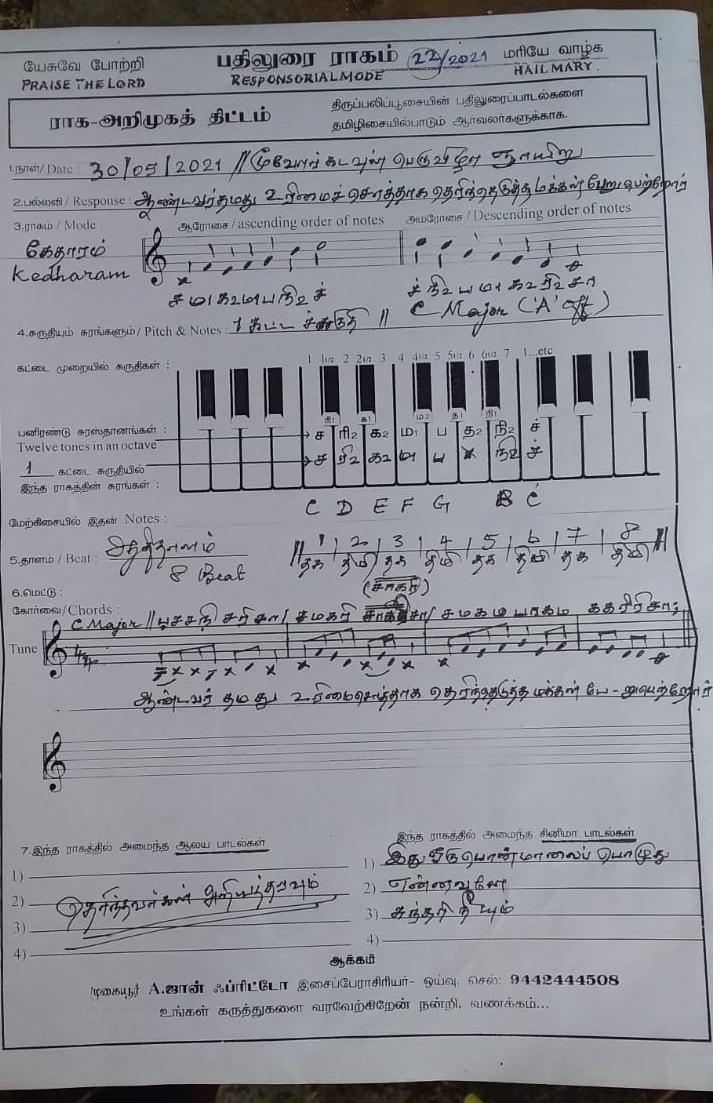 யேசுவே போற்றி
PRAISE THE LORD
பதிலுரை ராகம் 22/2021
RESPONSORIAL MODE
மரியே வாழ்க
HAIL MARY.
ராக-அறிமுகத் திட்டம்
திருப்பலிப்பூசையின் பதிலுரைப்பாடல்களை
தமிழிசையில்பாடும் ஆர்வலர்களுக்காக.
1.நாள்/ Date : 30/05/2021 // மூவொரு கடவுள் பெருவிழா ஞாயிறு
2.பல்லவி / Response : ஆண்டவர் தமது உரிமைச் சொத்தாக தெரிந்தெடுத்த மக்கள் பேறுபெற்றோர்
3.ராகம் / Mode :
ஆரோசை / ascending order of notes
அமரோசை / Descending order of notes
கேதாரம்
Kedharam
ச ம1 க2 ம1 ப நி2 ச்
ச் நி2 ப ம1 க2 ரி2 ச
4.சுருதியும் சுரங்களும்/ Pitch & Notes : 1 கட்ட சுருதி // C Major ('A' off)
கட்டை முறையில் சுருதிகள் :
1 1½ 2 2½ 3 4 4½ 5 5½ 6 6½ 7 1...etc
ரி1 க1 ம2 த1 நி1
பனிரண்டு சுரஸ்தானங்கள் :
Twelve tones in an octave
ச ரி2 க2 ம1 ப த2 நி2 ச்
1 கட்டை சுருதியில்
இந்த ராகத்தின் சுரங்கள் :
ச ரி2 க2 ம1 ப x நி2 ச்
மேற்கிசையில் இதன் Notes :
C D E F G B C
5.தாளம் / Beat : ஆதிதாளம்
8 Beat
// 1 | 2 | 3 | 4 | 5 | 6 | 7 | 8 //
தக திமி தக திமி தக திமி தக திமி
6.மெட்டு :
கோர்வை/ Chords :
C Major // ப ச ச நி ச ரி சா / ச ம க ரி
Tune
ஆண்டவர் தமது உரிமைசொத்தாக தெரிந்தெடுத்த மக்கள் பே - றுபெற்றோர்
7.இந்த ராகத்தில் அமைந்த ஆலய பாடல்கள்
1)
2)
3)
4)
தெரிந்தவர்கள் அறியத்தரவும்
இந்த ராகத்தில் அமைந்த சினிமா பாடல்கள்
1) இது ஒரு பொன்மாலைப் பொழுது
2) என்னவளே
3) சுந்தரி நீயும்
4)
ஆக்கம்
முகையூர் A.ஜான் ஃப்ரிட்டோ இசைப்பேராசிரியர்- ஓய்வு. செல்: 9442444508
உங்கள் கருத்துகளை வரவேற்கிறேன் நன்றி, வணக்கம்...